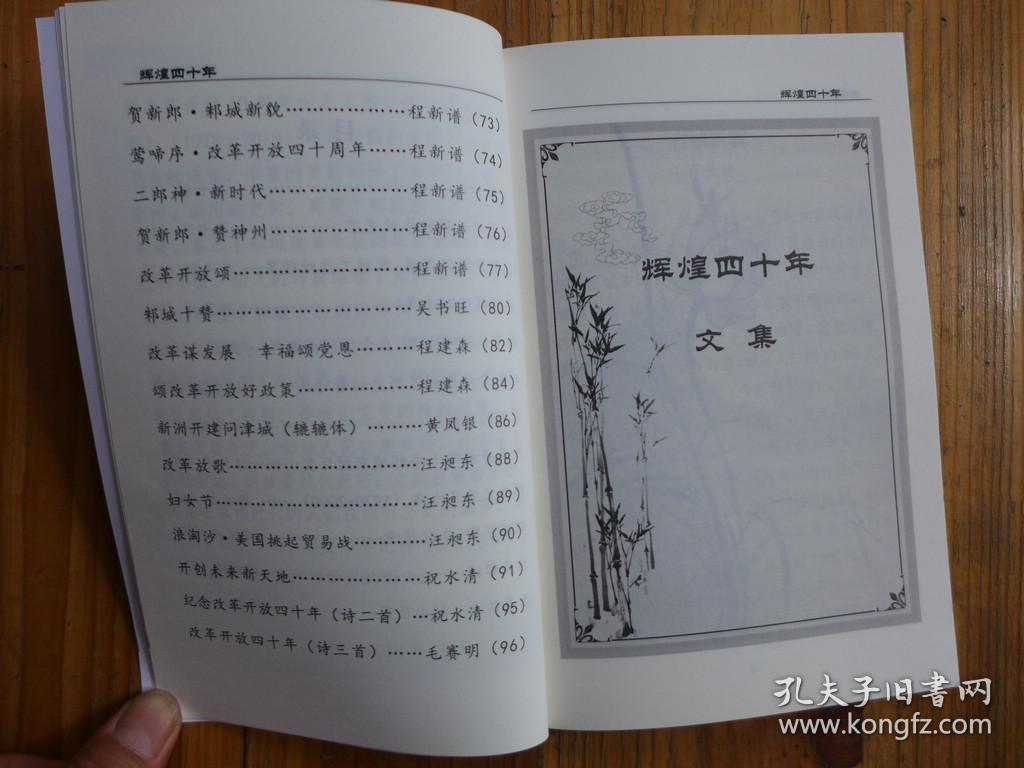 辉煌四十年
贺新郎·邾城新貌………………程新谱(73)
莺啼序·改革开放四十周年……程新谱(74)
二郎神·新时代…………………程新谱(75)
贺新郎·赞神州…………………程新谱(76)
改革开放颂………………………程新谱(77)
邾城十赞…………………………吴书旺(80)
改革谋发展 幸福颂党恩………程建森(82)
颂改革开放好政策………………程建森(84)
新洲开建问津城(辘辘体)………黄凤银(86)
改革放歌…………………………汪昶东(88)
妇女节……………………………汪昶东(89)
浪淘沙·美国挑起贸易战…………汪昶东(90)
开创未来新天地…………………祝水清(91)
纪念改革开放四十年(诗二首)…祝水清(95)
改革开放四十年(诗三首)……毛赛明(96)
辉煌四十年
辉煌四十年
文集
孔夫子旧书网
www.kongfz.com